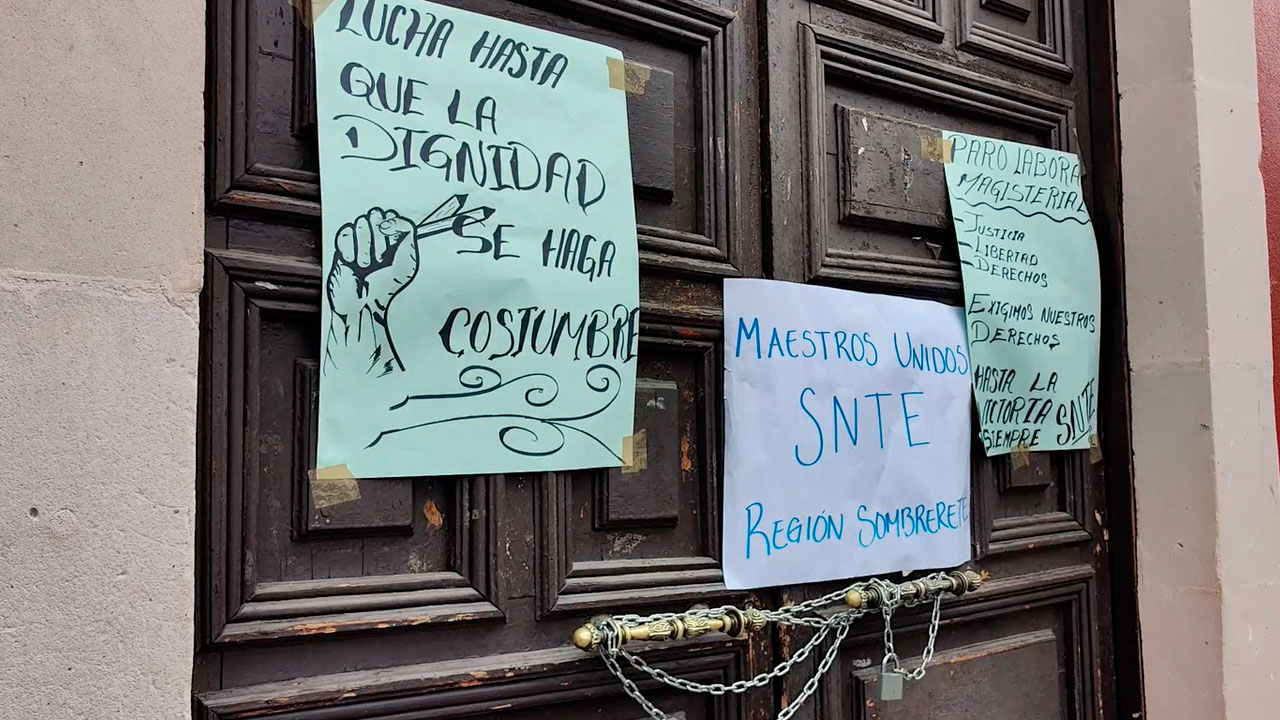 LUCHA HASTA
QUE LA
DIGNIDAD
SE HAGA
COSTUMBRE
MAESTROS UNIDOS
SNTE
REGIÓN SOMBRERETE
PARO LABORAL
MAGISTERIAL
- JUSTICIA
- LIBERTAD
- DERECHOS
EXIGIMOS NUESTROS
DERECHOS
HASTA LA
VICTORIA
SIEMPRE SNTE